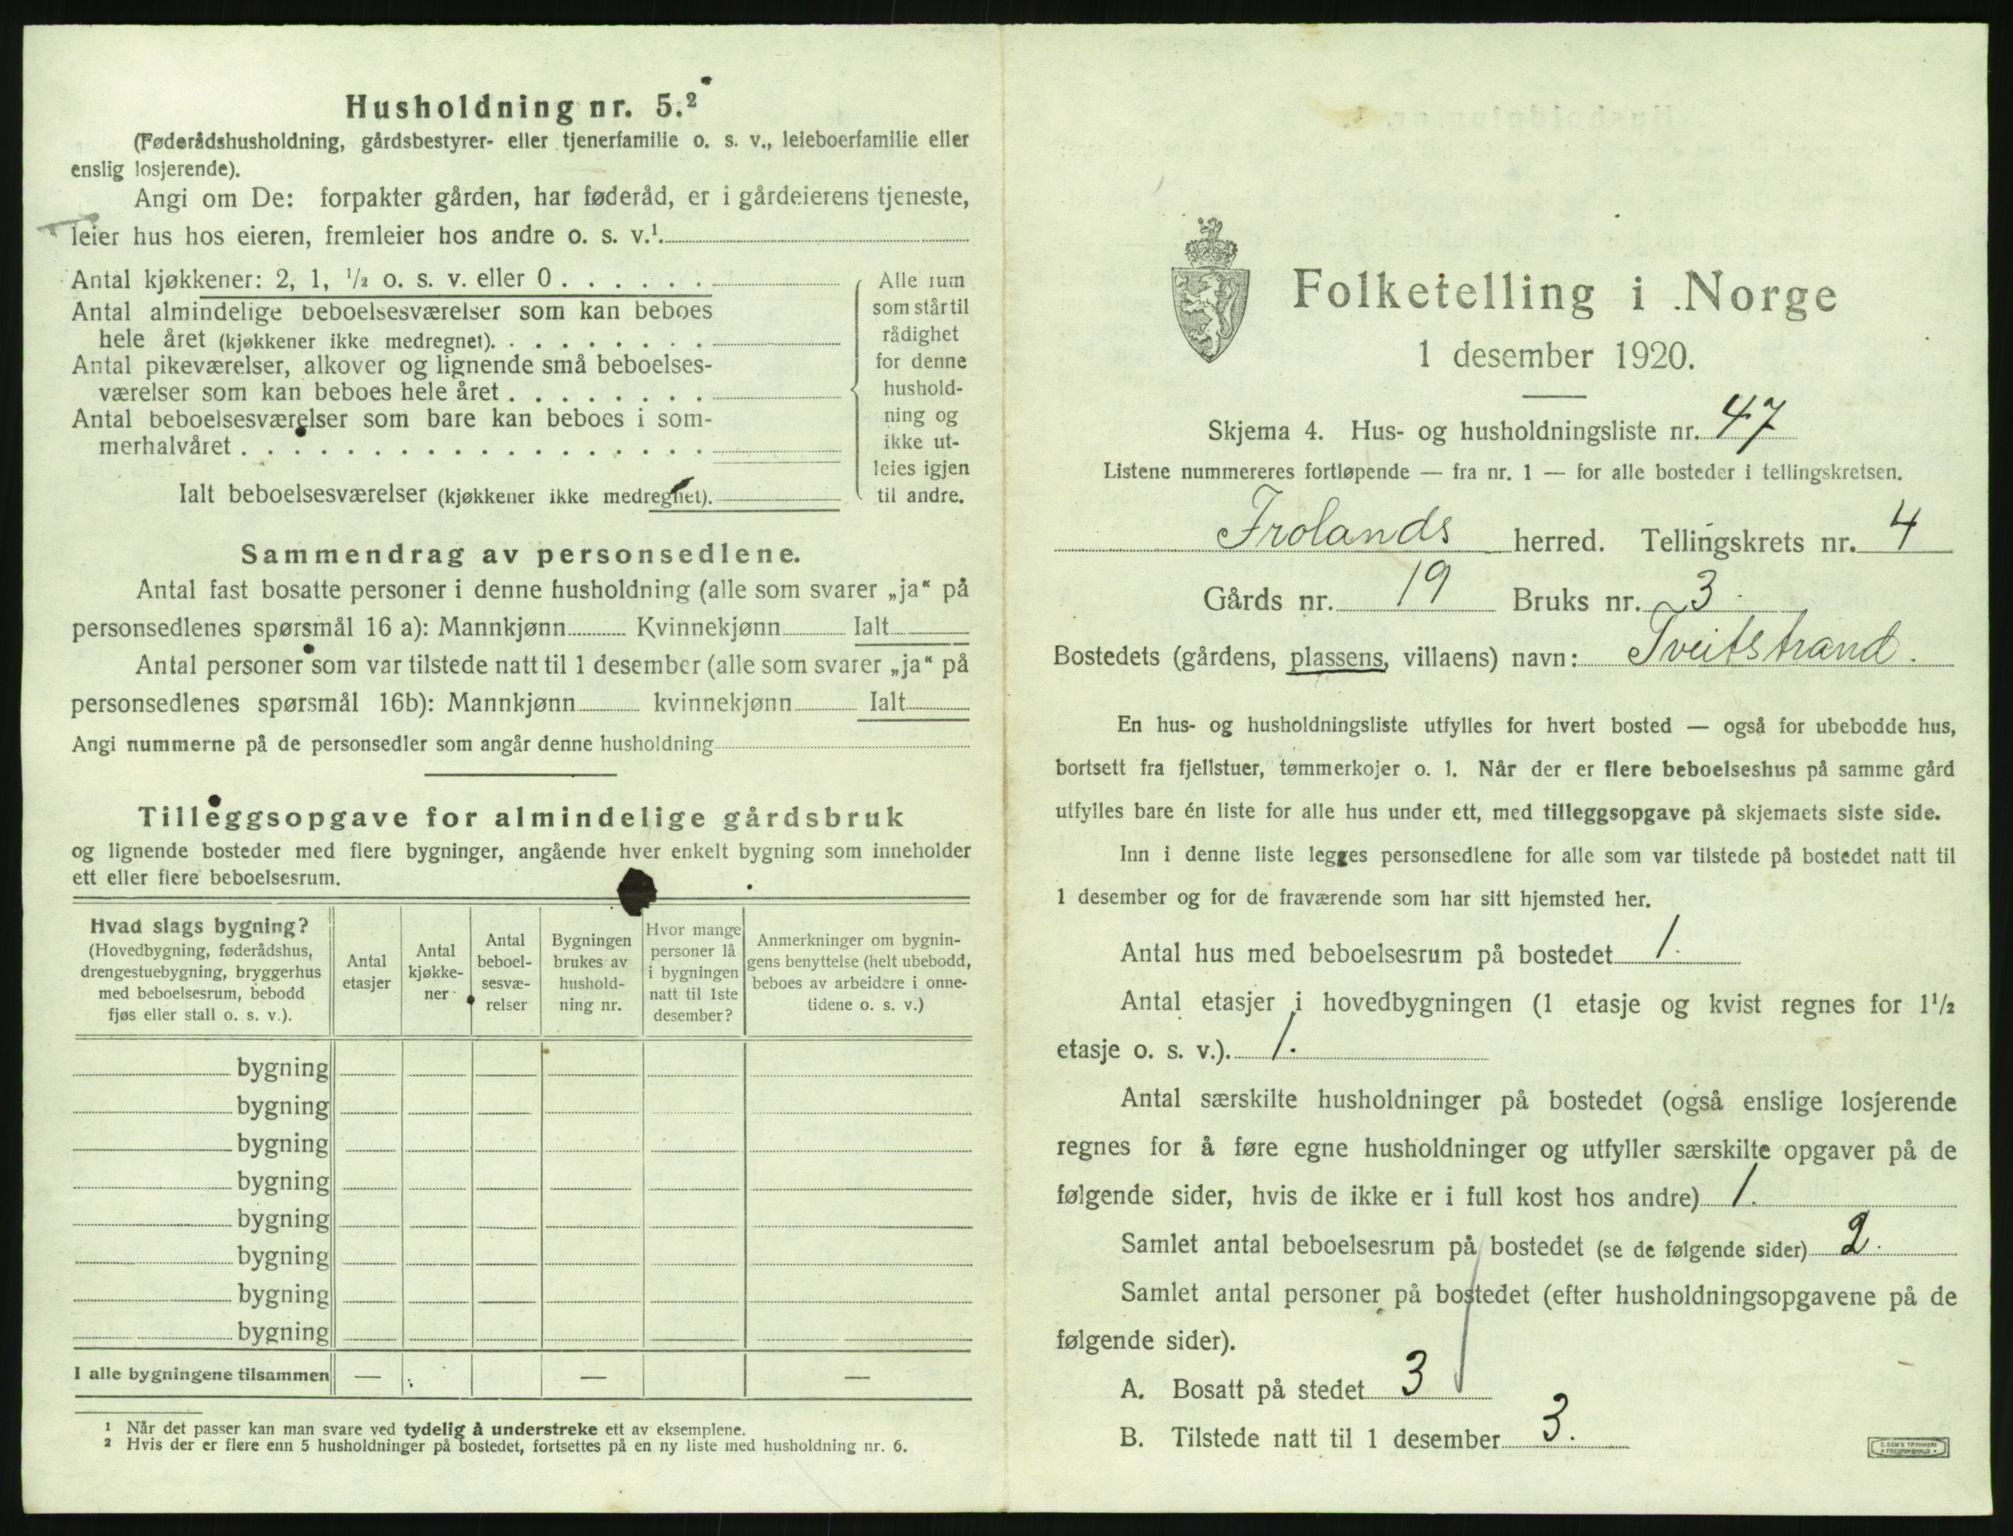 Husholdning nr. 5.²
(Føderådshusholdning, gårdsbestyrer- eller tjenerfamilie o. s. v., leieboerfamilie eller
enslig losjerende).
Angi om De: forpakter gården, har føderåd, er i gårdeierens tjeneste,
leier hus hos eieren, fremleier hos andre o. s. v.¹
Antal kjøkkener: 2, 1, ½ o. s. v. eller 0 . . . . . .
Antal almindelige beboelsesværelser som kan beboes
hele året (kjøkkener ikke medregnet). . . . . . . . .
Antal pikeværelser, alkover og lignende små beboelses-
værelser som kan beboes hele året . . . . . . . .
Antal beboelsesværelser som bare kan beboes i som-
merhalvåret . . . . . . . . . . . . . . . . . .
Ialt beboelsesværelser (kjøkkener ikke medregnet).
Alle rum
som står til
rådighet
for denne
hushold-
ning og
ikke ut-
leies igjen
til andre.
Sammendrag av personsedlene.
Antal fast bosatte personer i denne husholdning (alle som svarer „ja“ på
personsedlenes spørsmål 16 a): Mannkjønn Kvinnekjønn Ialt
Antal personer som var tilstede natt til 1 desember (alle som svarer „ja“ på
personsedlenes spørsmål 16b): Mannkjønn kvinnekjønn Ialt
Angi nummerne på de personsedler som angår denne husholdning
Tilleggsopgave for almindelige gårdsbruk
og lignende bosteder med flere bygninger, angående hver enkelt bygning som inneholder
ett eller flere beboelsesrum.
Hvad slags bygning?
(Hovedbygning, føderådshus,
drengestuebygning, bryggerhus
med beboelsesrum, bebodd
fjøs eller stall o. s. v.).
Antal
etasjer
Antal
kjøkke-
ner
Antal
beboel-
sesvæ-
relser
Bygningen
brukes av
hushold-
ning nr.
Hvor mange
personer lå
i bygningen
natt til 1ste
desember?
Anmerkninger om bygnin-
gens benyttelse (helt ubebodd,
beboes av arbeidere i onne-
tidene o. s. v.)
bygning
bygning
bygning
bygning
bygning
bygning
bygning
bygning
I alle bygningene tilsammen — — —
¹ Når det passer kan man svare ved tydelig å understreke ett av eksemplene.
² Hvis der er flere enn 5 husholdninger på bostedet, fortsettes på en ny liste med husholdning nr. 6.
Folketelling i Norge
1 desember 1920.
Skjema 4. Hus- og husholdningsliste nr. 47
Listene nummereres fortløpende — fra nr. 1 — for alle bosteder i tellingskretsen.
Frolands herred. Tellingskrets nr. 4
Gårds nr. 19 Bruks nr. 3.
Bostedets (gårdens, plassens, villaens) navn: Tveitstrand.
En hus- og husholdningsliste utfylles for hvert bosted — også for ubebodde hus,
bortsett fra fjellstuer, tømmerkojer o. l. Når der er flere beboelseshus på samme gård
utfylles bare én liste for alle hus under ett, med tilleggsopgave på skjemaets siste side.
Inn i denne liste legges personsedlene for alle som var tilstede på bostedet natt til
1 desember og for de fraværende som har sitt hjemsted her.
Antal hus med beboelsesrum på bostedet 1.
Antal etasjer i hovedbygningen (1 etasje og kvist regnes for 1½
etasje o. s. v.). 1.
Antal særskilte husholdninger på bostedet (også enslige losjerende
regnes for å føre egne husholdninger og utfyller særskilte opgaver på de
følgende sider, hvis de ikke er i full kost hos andre) 1.
Samlet antal beboelsesrum på bostedet (se de følgende sider) 2.
Samlet antal personer på bostedet (efter husholdningsopgavene på de
følgende sider).
A. Bosatt på stedet 3
B. Tilstede natt til 1 desember 3.